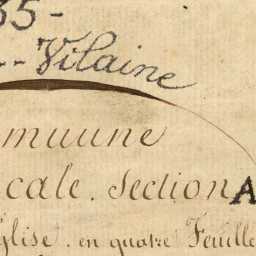 35-
-- Vilaine
mmuune
cale. Section A
glise. en quatre Feuille